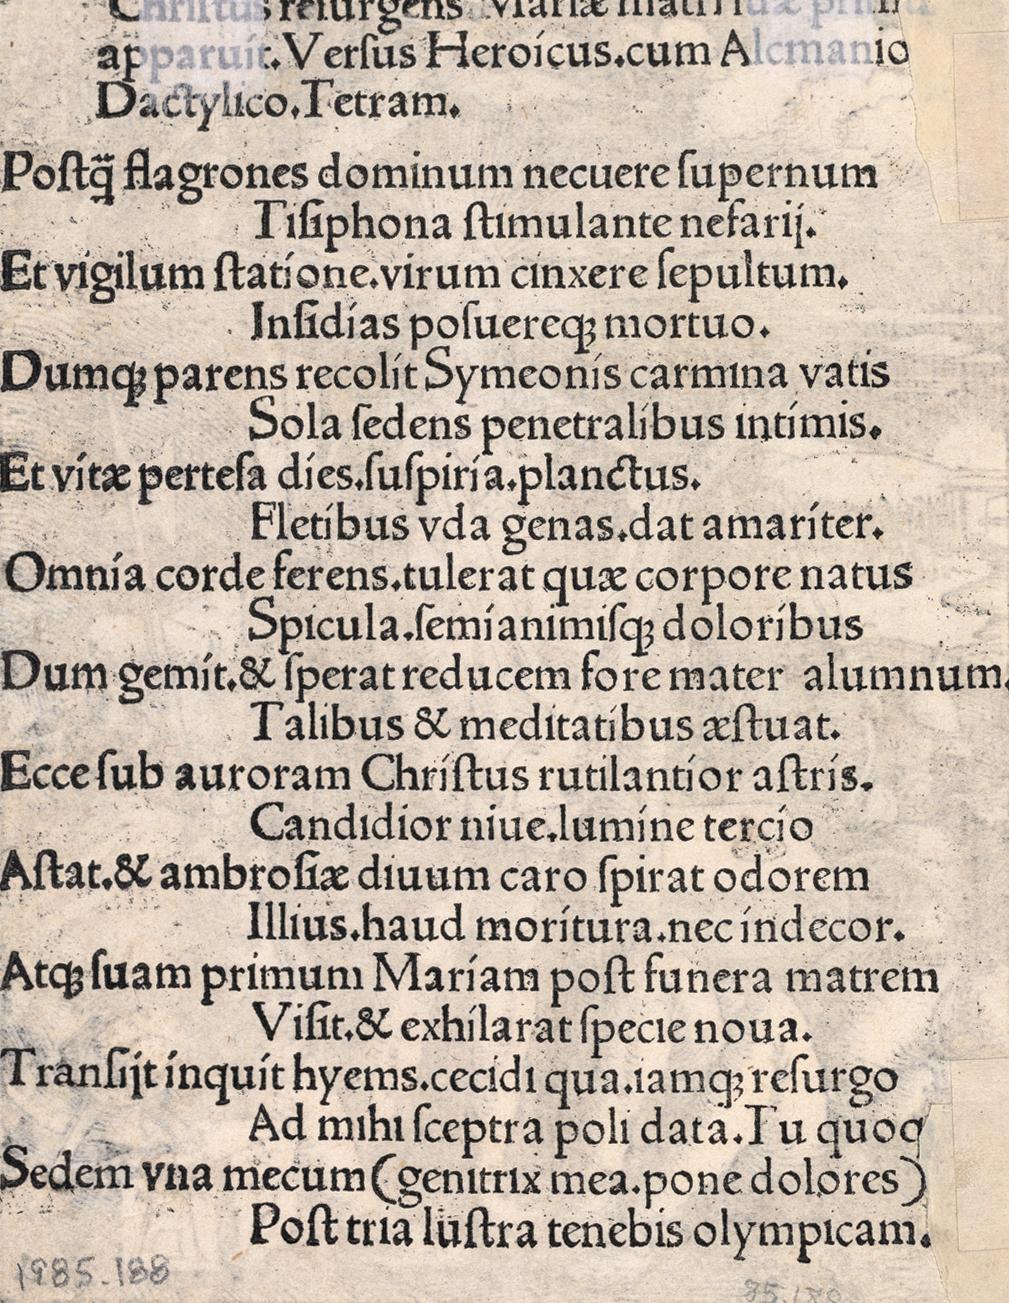 Chriſtus reſurgens Mariæ matri
apparuit. Verſus Heroicus.cum Alcmanio
Dactylico.Tetram.
Poſtq̃ flagrones dominum necuere ſupernum
Tiſiphona ſtimulante nefarij.
Et vigilum ſtatione.virum cinxere ſepultum.
Inſidias poſuereq; mortuo.
Dumq; parens recolit Symeonis carmina vatis
Sola ſedens penetralibus intimis.
Et vitæ perteſa dies.ſuſpiria.planctus.
Fletibus vda genas.dat amariter.
Omnia corde ferens.tulerat quæ corpore natus
Spicula.ſemianimiſq; doloribus
Dum gemit.& ſperat reducem fore mater alumnum.
Talibus & meditatibus æſtuat.
Ecce ſub auroram Chriſtus rutilantior aſtris.
Candidior niue.lumine tercio
Aſtat.& ambroſiæ diuum caro ſpirat odorem
Illius.haud moritura.nec indecor.
Atq; ſuam primum Mariam poſt funera matrem
Viſit.& exhilarat ſpecie noua.
Tranſijt inquit hyems.cecidi qua.iamq; reſurgo
Ad mihi ſceptra poli data.Tu quoq
Sedem vna mecum (genitrix mea.pone dolores)
Poſt tria luſtra tenebis olympicam.
1985.188